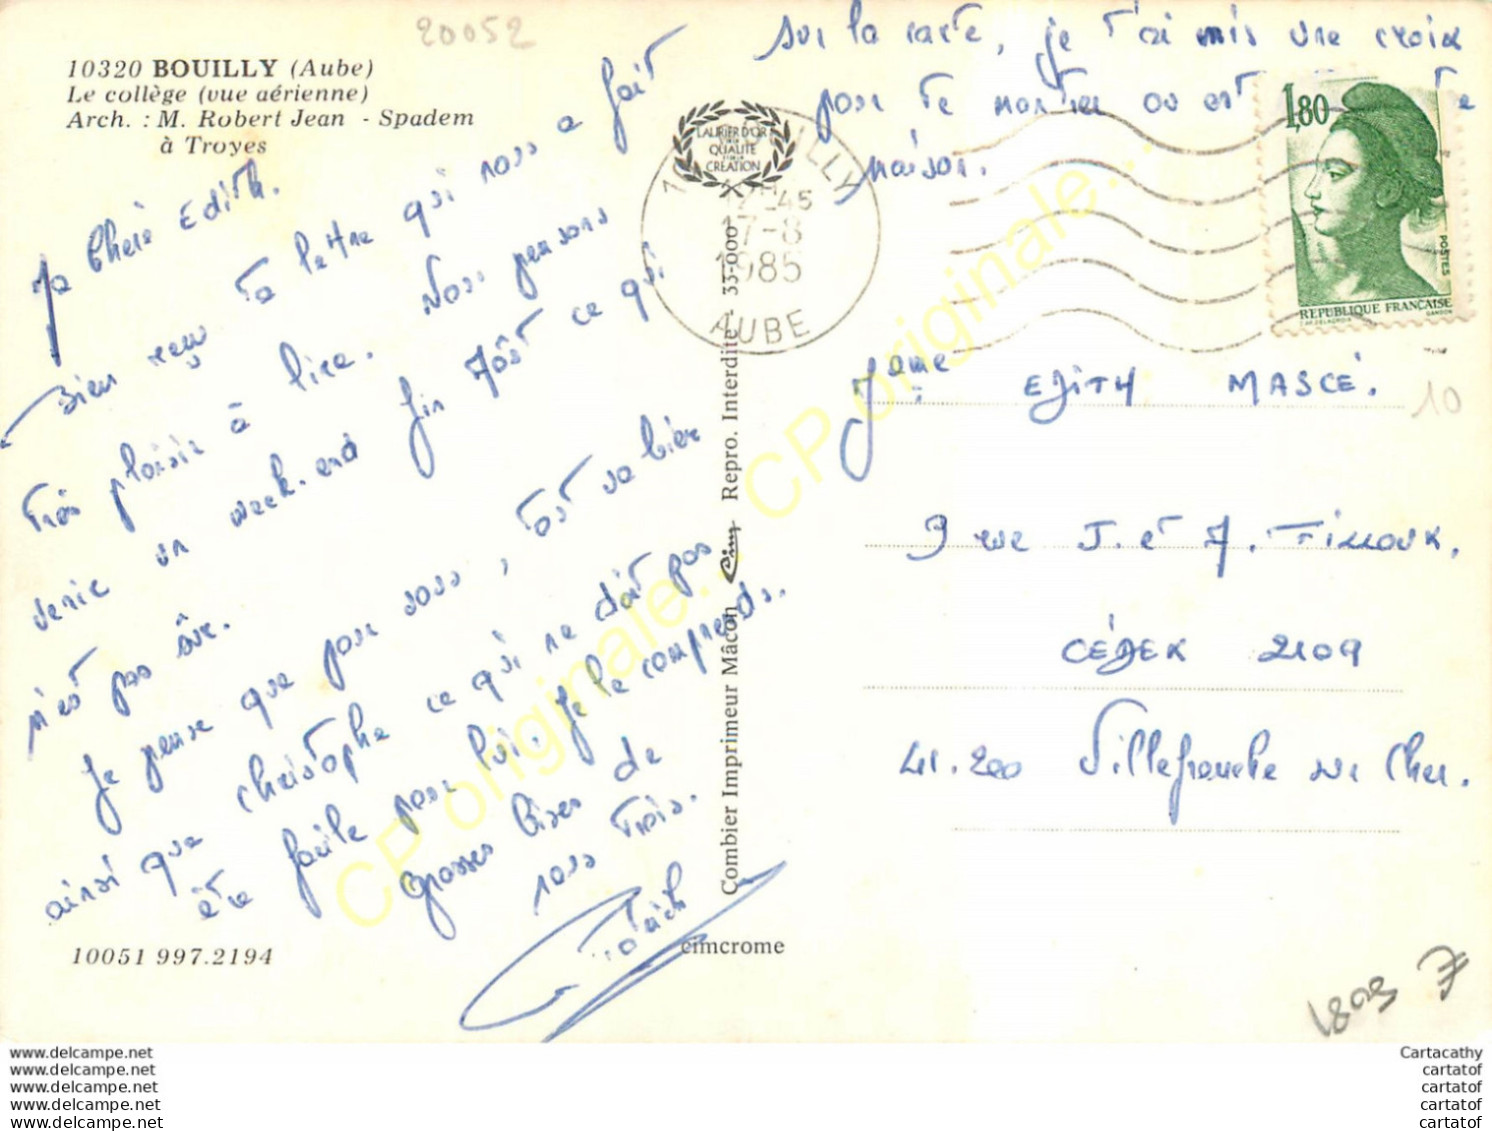 20052
10320 BOUILLY (Aube)
Le collège (vue aérienne)
Arch. : M. Robert Jean - Spadem
à Troyes
Ma Chère Edith.
Bien reçu ta lettre qui nous a fait
très plaisir à lire. Nous pensons
venir un week-end fin Août ce qui
n'est pas sûr.
Je pense que pour vous, tout va bien
ainsi que christophe ce qui ne doit pas
être facile pour lui. Je le comprends.
grosses bises de
nous trois.
10051 997.2194
cimcrome
Combier Imprimeur Mâcon Cim Repro. Interdite 33-000
sur la carte, je t'ai mis une croix
pour te montrer où est
maison.
LAURIER D'OR
QUALITÉ
CRÉATION
12H45
17-8
1985
AUBE
1,80
POSTES
REPUBLIQUE FRANÇAISE
GANDON
EDITH MASCÉ.
10
9 rue J. et A.
CÉDEX 2109
41.200 Villefranche sur Cher.
CP originale...
CP originale...
www.delcampe.net
www.delcampe.net
www.delcampe.net
www.delcampe.net
www.delcampe.net
Cartacathy
cartatof
cartatof
cartatof
cartatof